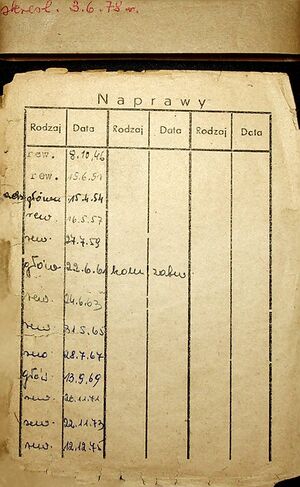 skreśl. 3.6.78 r.
Naprawy
Rodzaj Data Rodzaj Data Rodzaj Data
rew. 8.10.46
rew. 15.6.51
główna 15.4.54
rew. 16.5.57
rew. 27.7.59
główn. 22.6.61
rew. 24.6.63
rew 31.5.65
rew 28.7.67
głów. 13.9.69
rew. 26.11.71
rew. 22.11.73
rew. 12.12.75